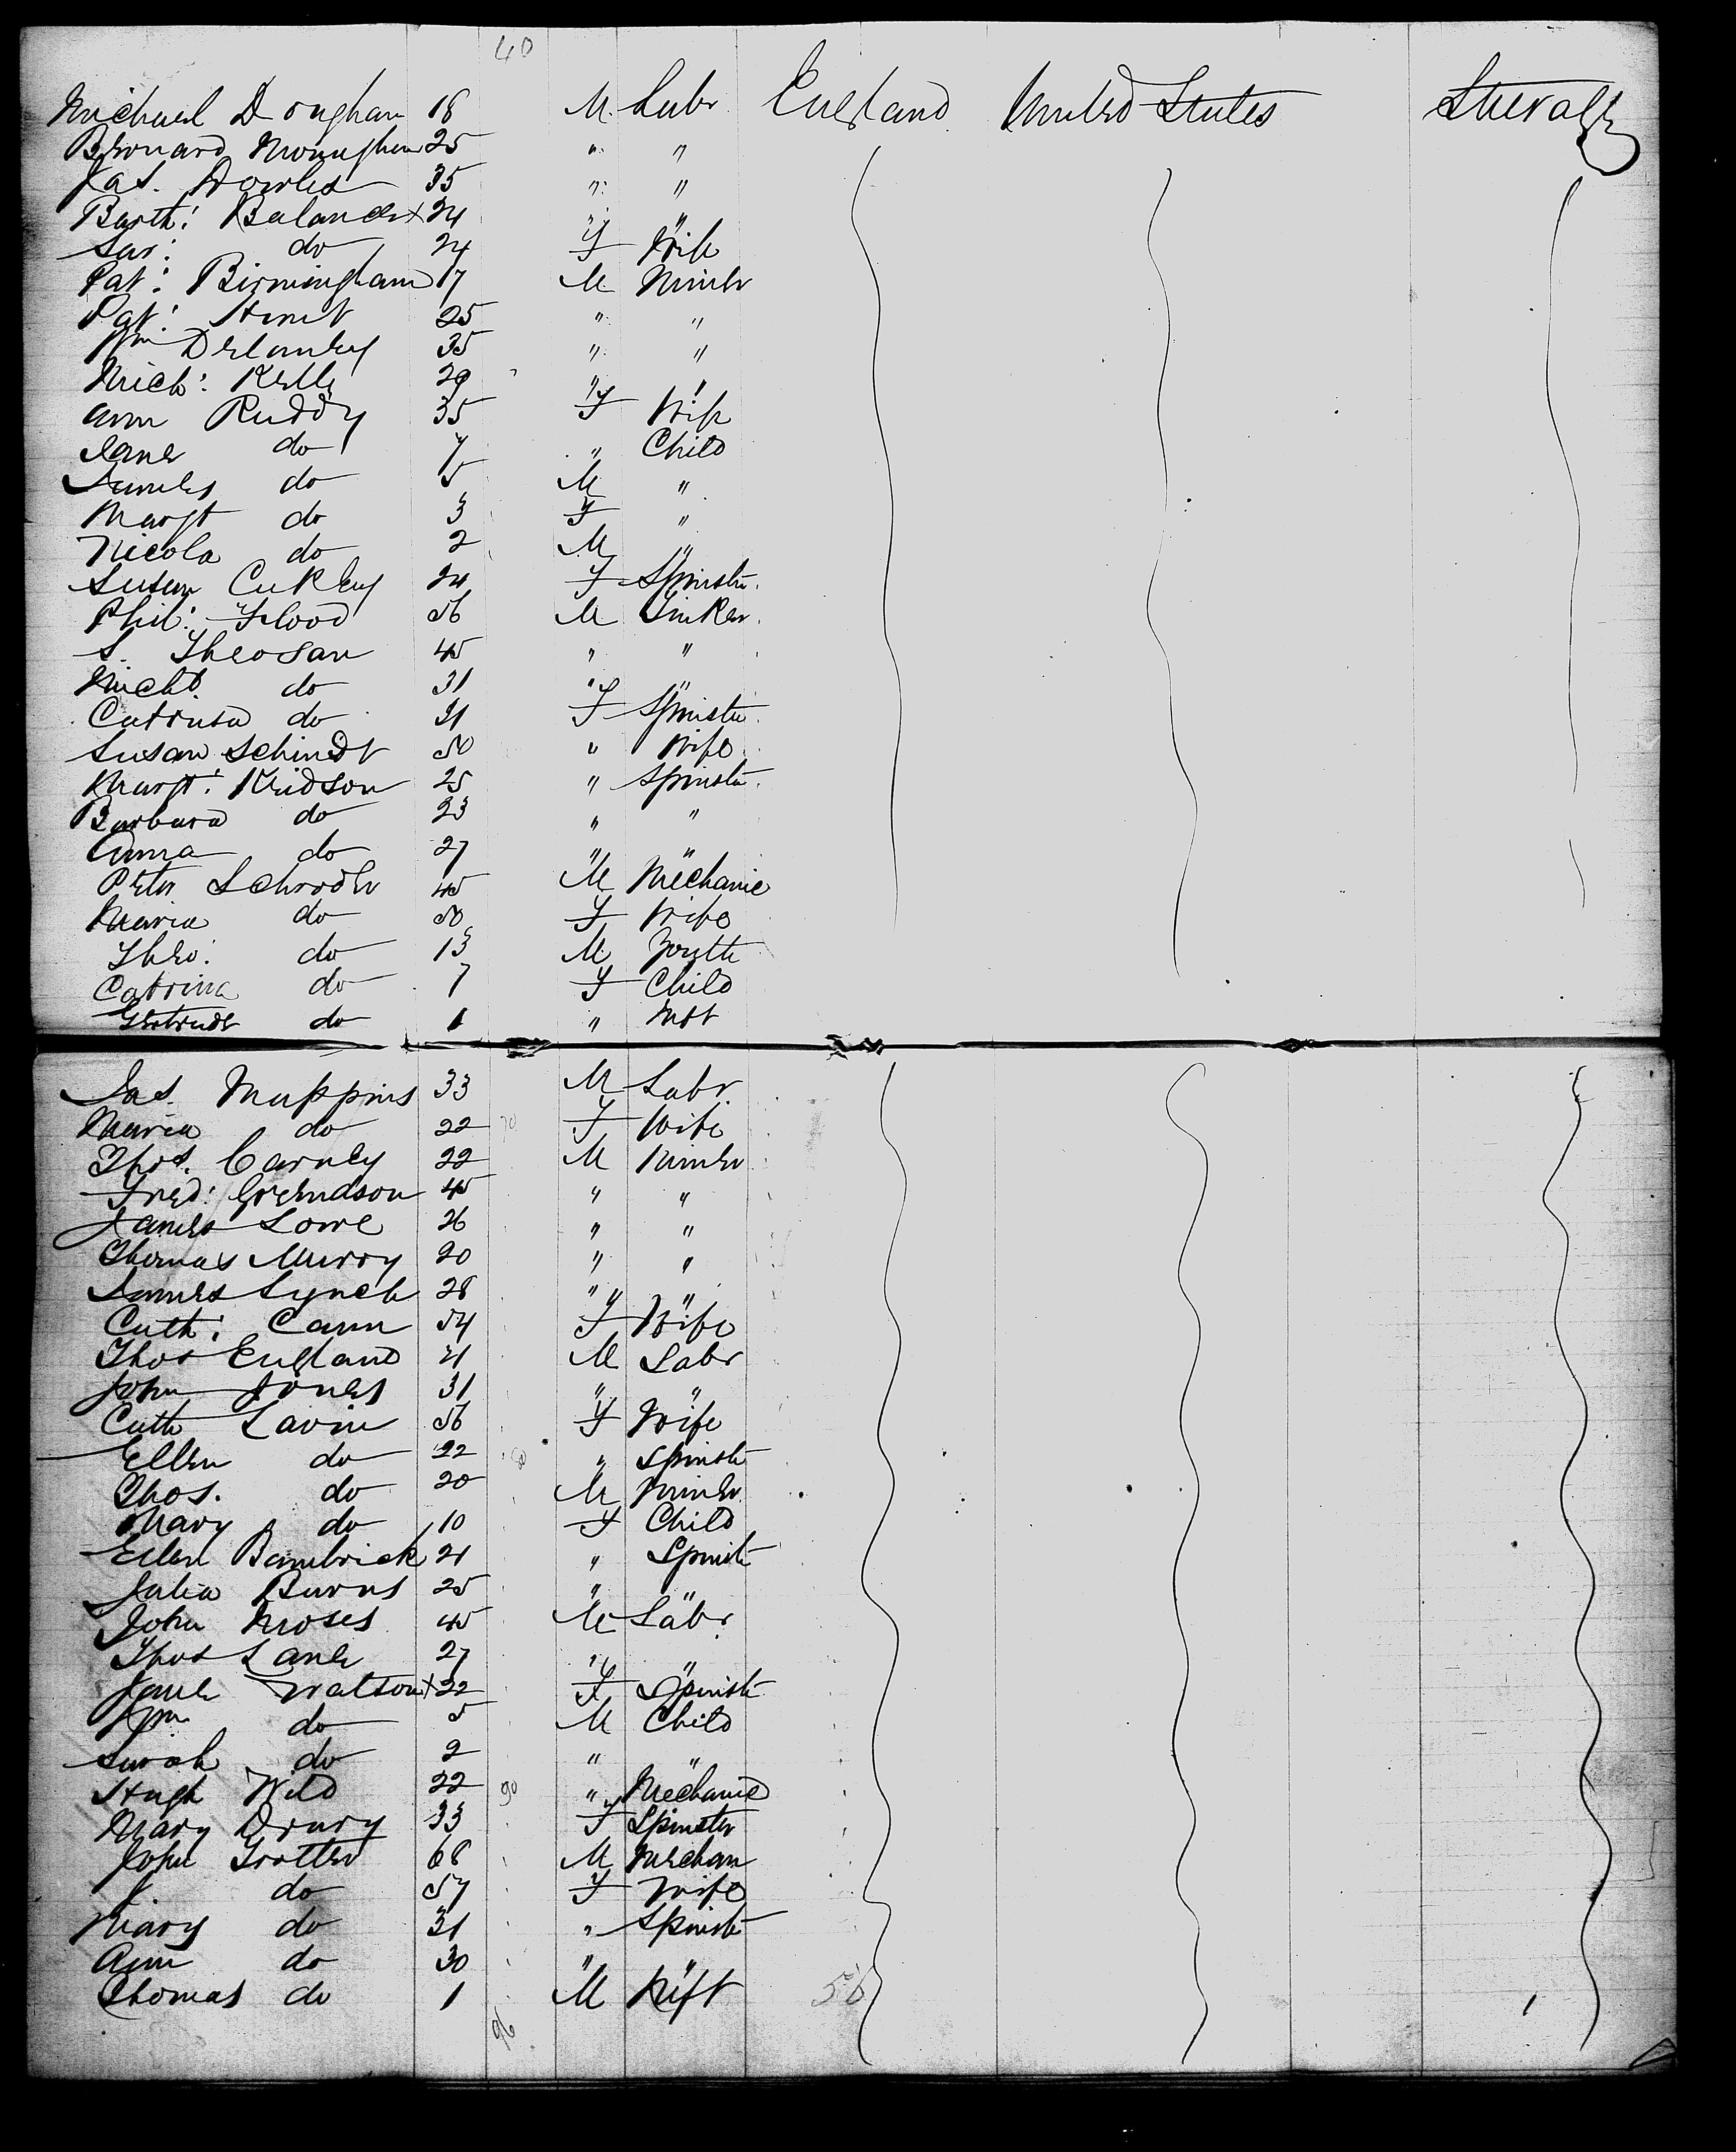 40
Michael Donghan 18 M. Labr England United States Steerage
Bernard Monughan 25 " "
Jas. Dowled 35 " "
Barth: Balance x 24 " "
Sar: do 24 F Wife
Pat: Birmingham 17 M Miner
Pat: Hunt 25 " "
Wm Delaney 35 " "
Mich: Kelly 29 " "
Ann Ruddy 35 F Wife
Jane do 7 " Child
James do 5 M "
Margt do 3 F "
Nicola do 2 M "
Susan Cukley 24 F Spinstr.
Phil: Flood 56 M Tinker.
S. Theosan 45 " "
Michl. do 31 " "
Catrusa do 21 F Spinstr.
Susan Schindt 50 " Wife
Margt: Kridson 25 " Spinstr.
Barbara do 23 " "
Anna do 27 " "
Peter Schroder 45 M Mechanic
Maria do 50 F Wife
Theo: do 13 M Youth
Catrina do 7 F Child
Gertrude do 1 " Inft
Jas. Muppins 33 M Labr.
Maria do 22 F Wife
Thos. Carney 22 M Miner
Fred: Grendson 45 " "
James Lowe 26 " "
Thomas Murry 20 " "
James Lynch 28 " "
Cath: Cann 54 F Wife
Thos England 21 M Labr
John Jones 31 " "
Cath Lavin 56 F Wife
Ellen do 22 " Spinstr
Thos. do 20 M Miner
Mary do 10 F Child
Ellen Bambrick 21 " Spinstr
Julia Burns 25 " "
John Moses 45 M Labr.
Thos Lane 27 " "
Jane Watson x 22 F Spinstr
Wm do 5 M Child
Sarah do 2 " "
Hugh Wild 22 90 " Mechanic
Mary Drury 33 F Spinster
John Grotted 68 M Mechan
J. do 57 F Wife
Mary do 31 " Spinstr
Ann do 30 " "
Thomas do 1 M Inft 56
96